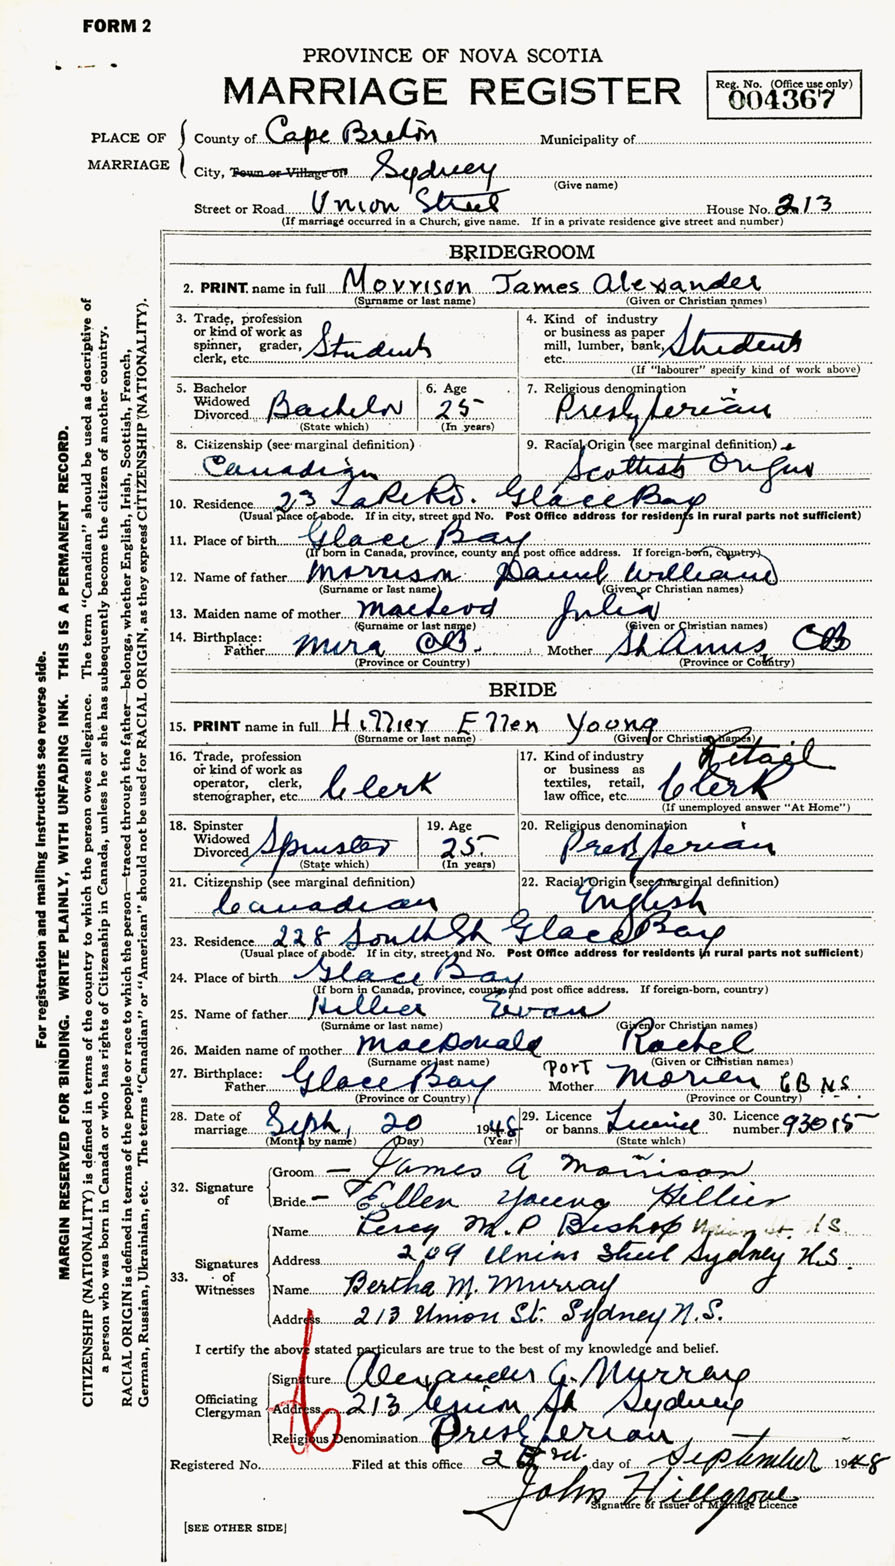 FORM 2
PROVINCE OF NOVA SCOTIA
MARRIAGE REGISTER
Reg. No. (Office use only)
004367
PLACE OF MARRIAGE
County of Cape Breton Municipality of
City, Town or Village of Sydney
(Give name)
Street or Road Union Street House No. 213
(If marriage occurred in a Church, give name. If in a private residence give street and number)
BRIDEGROOM
2. PRINT name in full Morrison James Alexander
(Surname or last name) (Given or Christian names)
3. Trade, profession or kind of work as spinner, grader, clerk, etc. Student
4. Kind of industry or business as paper mill, lumber, bank, etc. Student
(If "labourer" specify kind of work above)
5. Bachelor Widowed Divorced Bachelor
(State which)
6. Age 25
(In years)
7. Religious denomination Presbyterian
8. Citizenship (see marginal definition) Canadian
9. Racial Origin (see marginal definition) Scottish Origin
10. Residence 23 Lake Rd. Glace Bay
(Usual place of abode. If in city, street and No. Post Office address for residents in rural parts not sufficient)
11. Place of birth Glace Bay
(If born in Canada, province, county and post office address. If foreign-born, country)
12. Name of father Morrison Daniel William
(Surname or last name) (Given or Christian names)
13. Maiden name of mother MacLeod Julia
(Surname or last name) (Given or Christian names)
14. Birthplace: Father Mira CB. Mother St Anns, CB
(Province or Country) (Province or Country)
BRIDE
15. PRINT name in full Hillier Ellen Young
(Surname or last name) (Given or Christian names)
16. Trade, profession or kind of work as operator, clerk, stenographer, etc. Clerk
17. Kind of industry or business as textiles, retail, law office, etc. Retail Clerk
(If unemployed answer "At Home")
18. Spinster Widowed Divorced Spinster
(State which)
19. Age 25
(In years)
20. Religious denomination Presbyterian
21. Citizenship (see marginal definition) Canadian
22. Racial Origin (see marginal definition) English
23. Residence 228 South St Glace Bay
(Usual place of abode. If in city, street and No. Post Office address for residents in rural parts not sufficient)
24. Place of birth Glace Bay
(If born in Canada, province, county and post office address. If foreign-born, country)
25. Name of father Hillier Evan
(Surname or last name) (Given or Christian names)
26. Maiden name of mother MacDonald Rachel
(Surname or last name) (Given or Christian names)
27. Birthplace: Father Glace Bay Mother Port Morien CB N.S.
(Province or Country) (Province or Country)
28. Date of marriage Sept, 20 1948
(Month by name) (Day) (Year)
29. Licence or banns Licence
(State which)
30. Licence number 93015
32. Signature of
Groom James A Morrison
Bride Ellen Young Hillier
33. Signatures of Witnesses
Name Percy M. P Bishop
Address 209 Union Street Sydney N.S.
Name Bertha M. Murray
Address 213 Union St. Sydney N.S.
I certify the above stated particulars are true to the best of my knowledge and belief.
Officiating Clergyman
Signature Alexander G. Murray
Address 213 Union St Sydney
Religious Denomination Presbyterian
Registered No. Filed at this office 23rd. day of September 1948
John Hillgrove
Signature of Issuer of Marriage Licence
[SEE OTHER SIDE]
For registration and mailing instructions see reverse side.
MARGIN RESERVED FOR BINDING. WRITE PLAINLY, WITH UNFADING INK. THIS IS A PERMANENT RECORD.
CITIZENSHIP (NATIONALITY) is defined in terms of the country to which the person owes allegiance. The term "Canadian" should be used as descriptive of
a person who was born in Canada or who has rights of Citizenship in Canada, unless he or she has subsequently become the citizen of another country.
RACIAL ORIGIN is defined in terms of the people or race to which the person—traced through the father—belongs, whether English, Irish, Scottish, French,
German, Russian, Ukrainian, etc. The terms "Canadian" or "American" should not be used for RACIAL ORIGIN, as they express CITIZENSHIP (NATIONALITY).